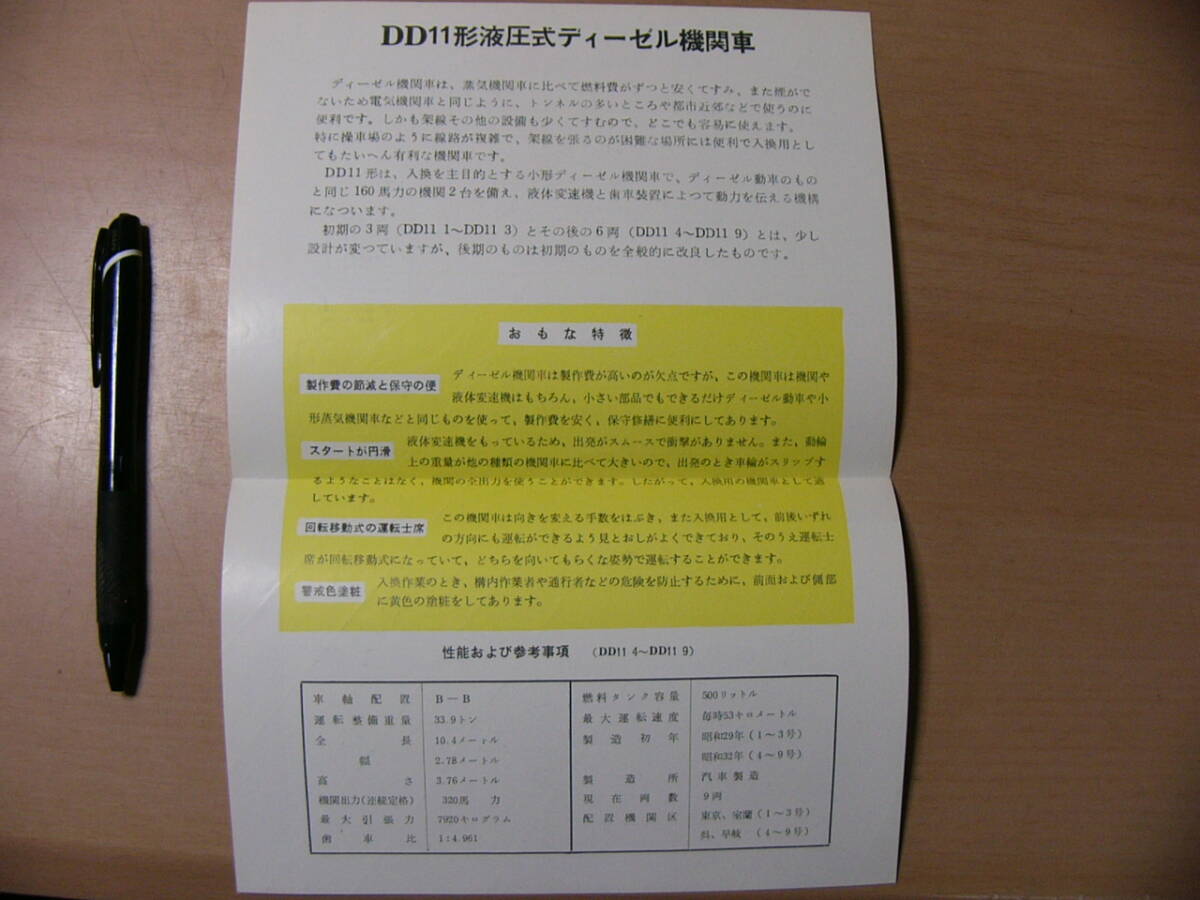 DD11形液圧式ディーゼル機関車
ディーゼル機関車は、蒸気機関車に比べて燃料費がずつと安くてすみ、また煙がで
ないため電気機関車と同じように、トンネルの多いところや都市近郊などで使うのに
便利です。しかも架線その他の設備も少くてすむので、どこでも容易に使えます。
特に操車場のように線路が複雑で、架線を張るのが困難な場所には便利で入換用とし
てもたいへん有利な機関車です。
DD11形は、入換を主目的とする小形ディーゼル機関車で、ディーゼル動車のもの
と同じ160馬力の機関2台を備え、液体変速機と歯車装置によつて動力を伝える機構
になつています。
初期の3両（DD11 1〜DD11 3）とその後の6両（DD11 4〜DD11 9）とは、少し
設計が変つていますが、後期のものは初期のものを全般的に改良したものです。
おもな特徴
製作費の節減と保守の便 ディーゼル機関車は製作費が高いのが欠点ですが、この機関車は機関や
液体変速機はもちろん、小さい部品でもできるだけディーゼル動車や小
形蒸気機関車などと同じものを使って，製作費を安く，保守修繕に便利にしてあります。
スタートが円滑 液体変速機をもっているため、出発がスムースで衝撃がありません。また，動輪
上の重量が他の種類の機関車に比べて大きいので，出発のとき車輪がスリップす
るようなことはなく，機関の全出力を使うことができます。したがって，入換用の機関車として適
しています。
回転移動式の運転士席 この機関車は向きを変える手数をはぶき，また入換用として，前後いずれ
の方向にも運転ができるよう見とおしがよくできており，そのうえ運転士
席が回転移動式になっていて，どちらを向いてもらくな姿勢で運転することができます。
警戒色塗粧 入換作業のとき，構内作業者や通行者などの危険を防止するために、前面および側部
に黄色の塗粧をしてあります。
性能および参考事項 （DD11 4〜DD11 9）
車軸配置 B－B
運転整備重量 33.9トン
全長 10.4メートル
幅 2.78メートル
高さ 3.76メートル
機関出力（連続定格） 320馬力
最大引張力 7920キログラム
歯車比 1:4.961
燃料タンク容量 500リットル
最大運転速度 毎時53キロメートル
製造初年 昭和29年（1〜3号）
昭和32年（4〜9号）
製造所 汽車製造
現在両数 9両
配置機関区 東京、室蘭（1〜3号）
呉、早岐（4〜9号）